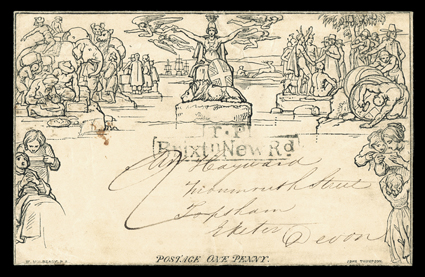 T.P
Brixtn New Rd
Mr Hayward
Street
Topsham
Exeter Devon
POSTAGE ONE PENNY.
W. MULREADY, R.A.
JOHN THOMPSON